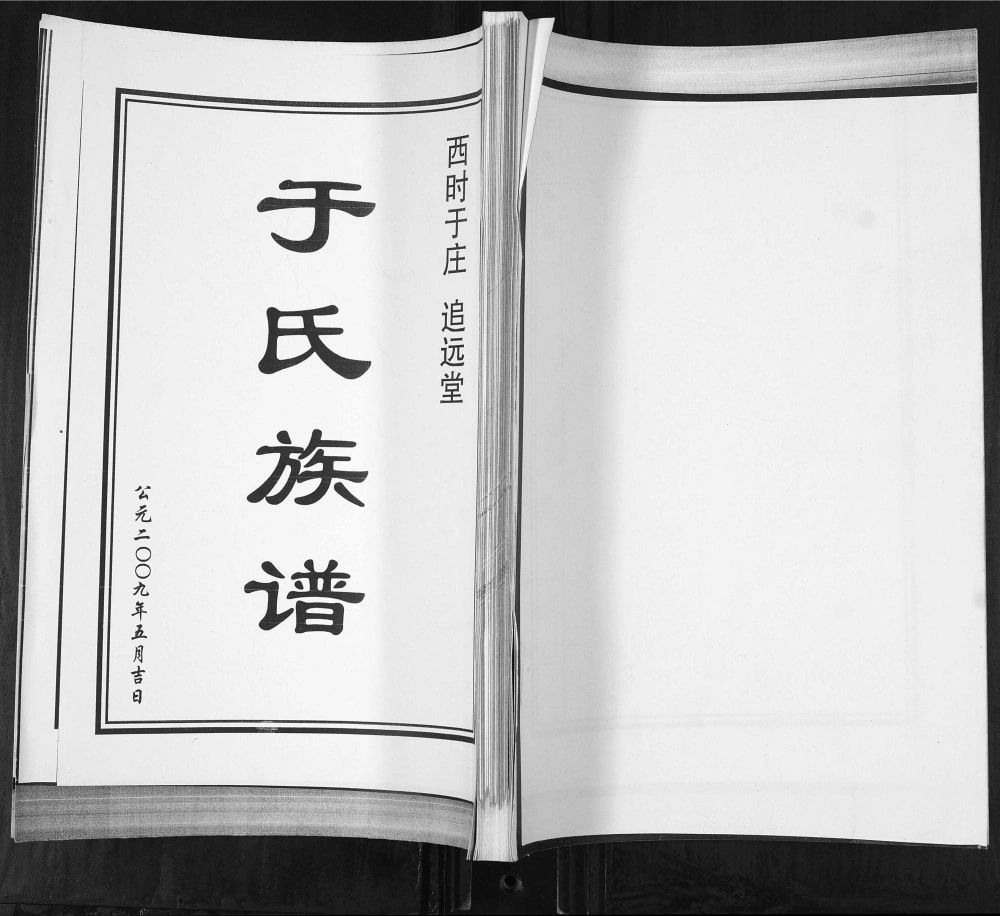 西时于庄 追远堂
于氏族谱
公元二〇〇九年五月吉日